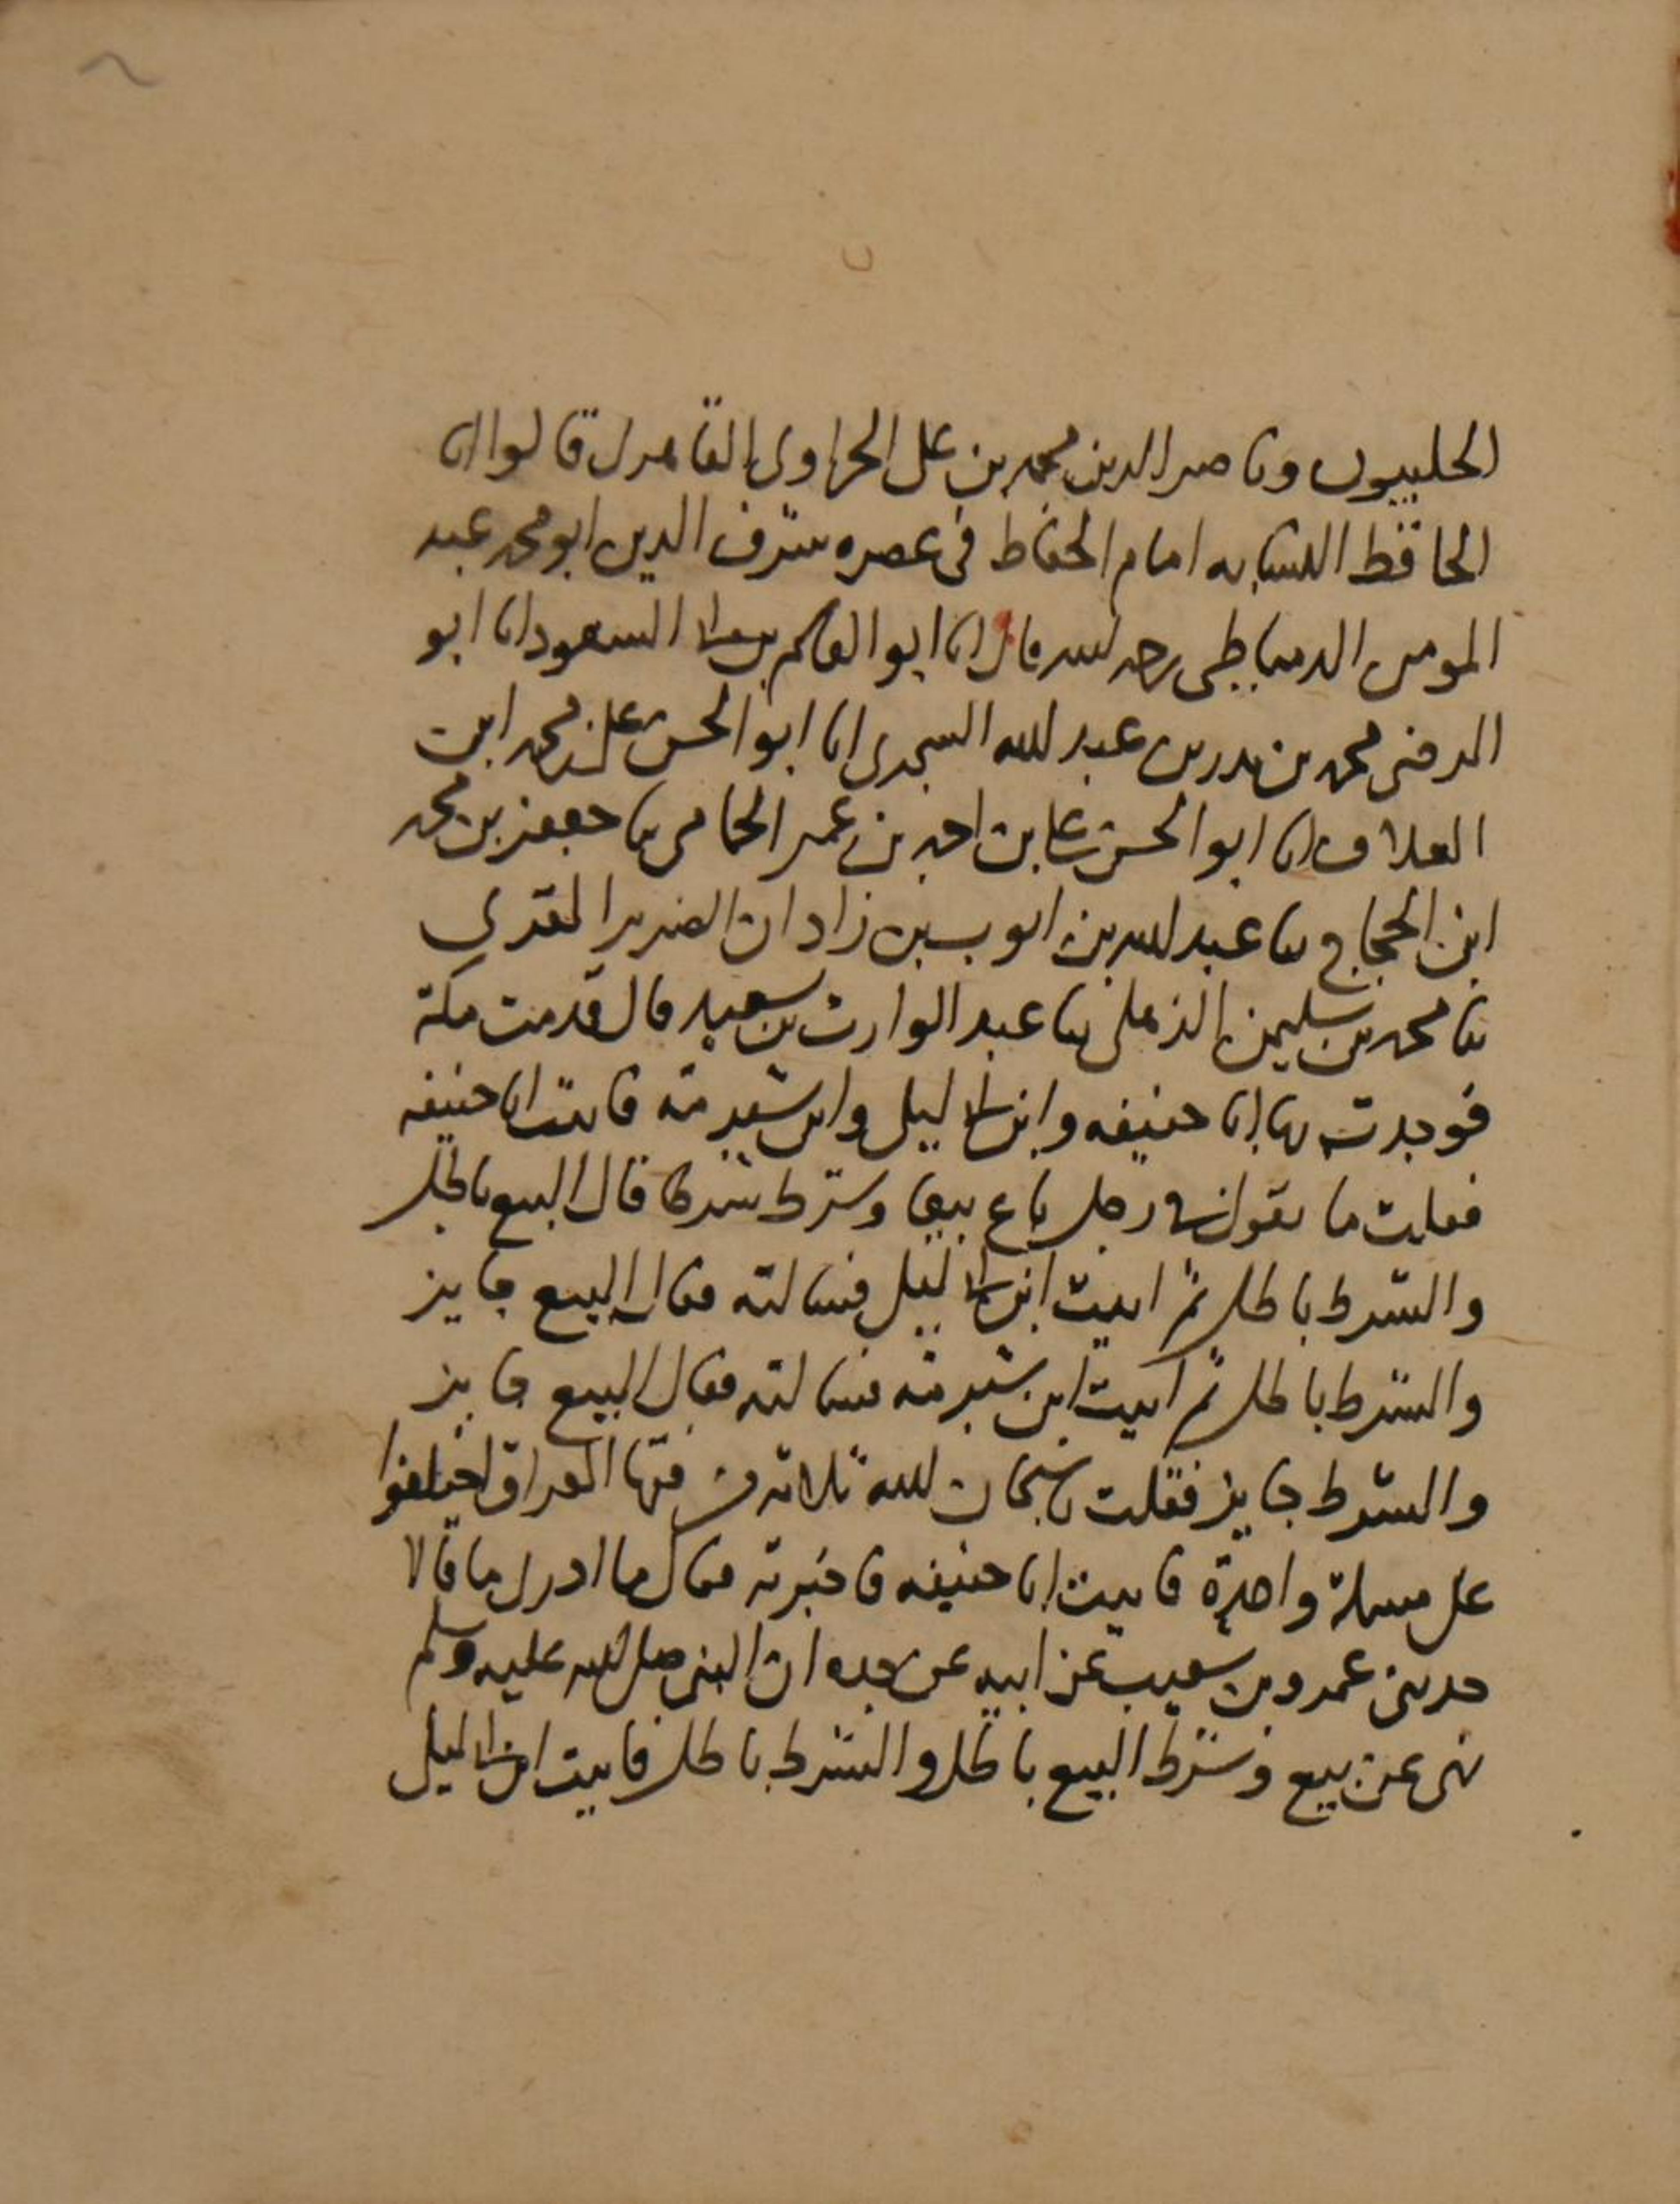 الحلبيون وناصر الدين محمد بن على الحراوى القاهرى قالوا انا
الحافظ النسابه امام الحفاظ فى عصره شرف الدين ابو محمد عبد
المومن الدمياطى رحمه الله قال انا ابو القاسم بن ابى السعود انا ابو
الرضى محمد بن بدر بن عبد الله السجدى انا ابو الحسن على بن محمد ابن
العلاف انا ابو الحسن على بن احمد بن عمر الحمامى نا جعفر بن محمد
ابن الحجاج نا عبد الله بن ايوب بن زادان الضرير المقرى
نا محمد بن سليمن الذهلى نا عبد الوارث بن سعيد قال قدمت مكة
فوجدت بها ابا حنيفه وابن ابى ليلى وابن شبرمة فاتيت ابا حنيفه
فقلت ما تقول فى رجل باع بيعا وشرط شرطا قال البيع باطل
والشرط باطل ثم اتيت ابن ابى ليلى فسالته فقال البيع جايز
والشرط باطل ثم اتيت ابن شبرمه فسالته فقال البيع جايز
والشرط جايز فقلت يا سبحان الله ثلاثه من فقها العراق اختلفوا
على مسلة واحدة فاتيت ابا حنيفه فاخبرته فقال ما ادرى ما قالا
حدثنى عمرو بن شعيب عن ابيه عن جده ان النبى صلى الله عليه وسلم
نهى عن بيع وشرط البيع باطل والشرط باطل فاتيت ابن ابى ليلى